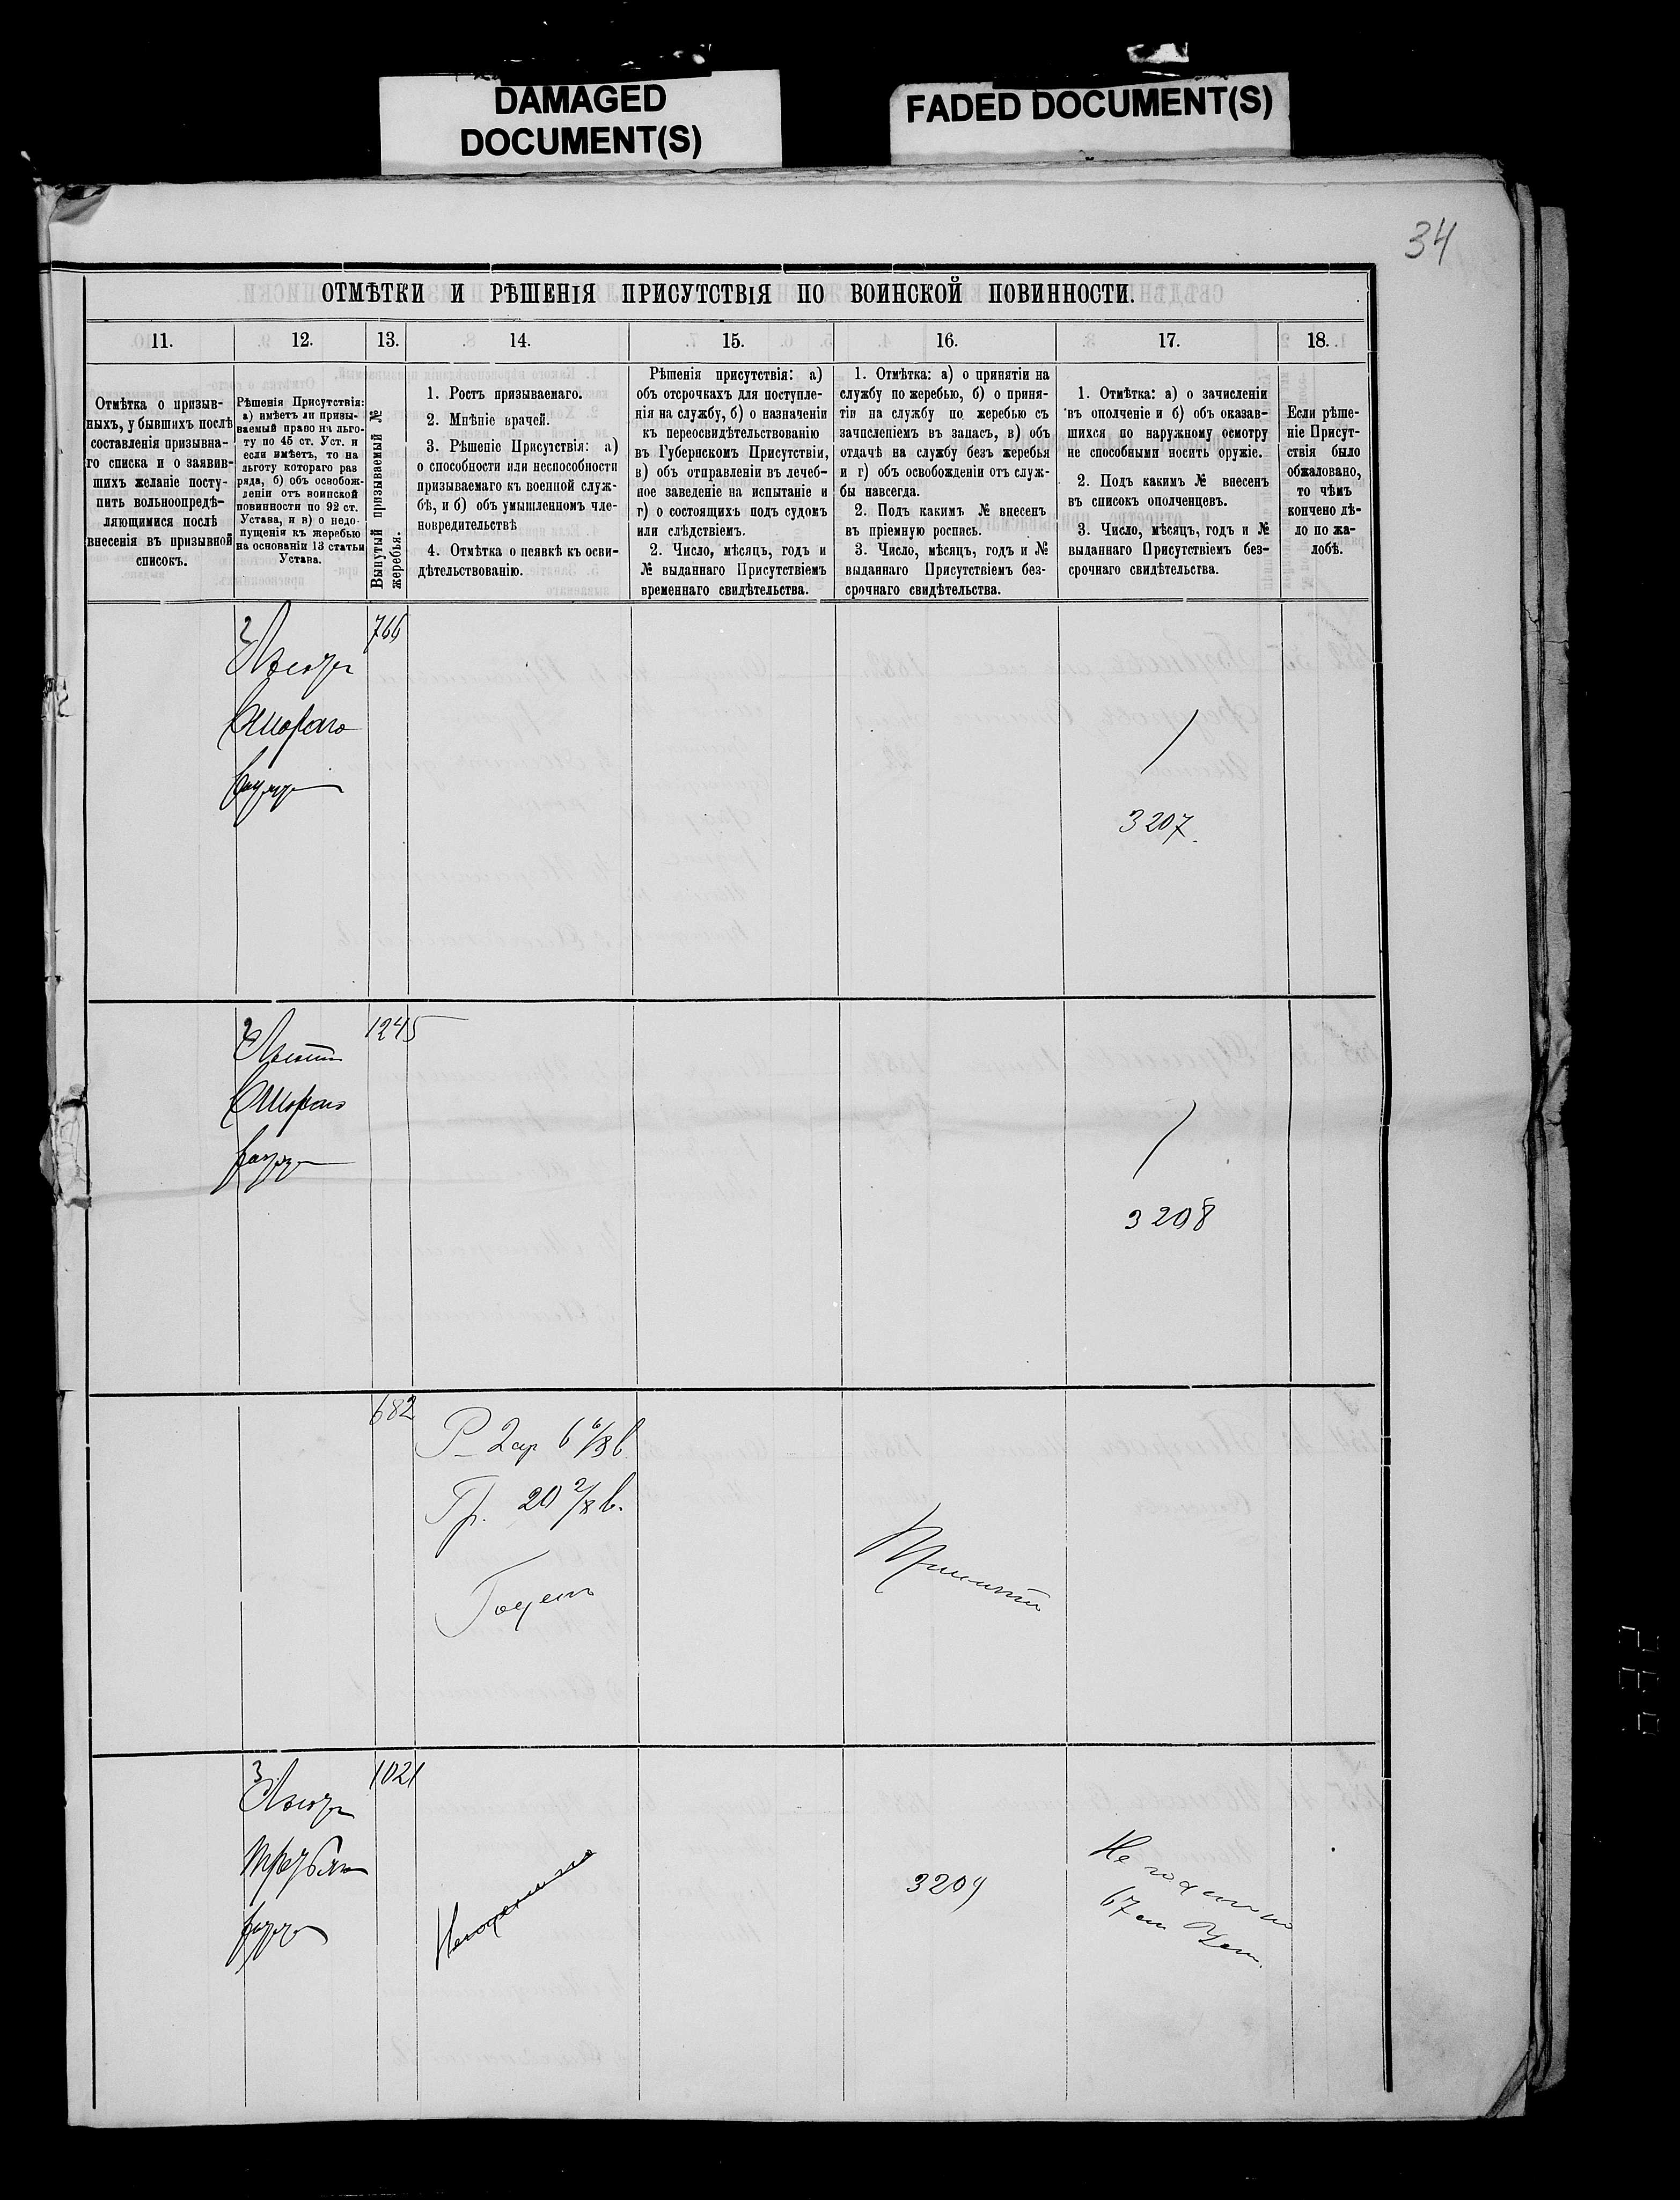 DAMAGED
DOCUMENT(S)
FADED DOCUMENT(S)
34
ОТМѢТКИ И РѢШЕНІЯ ПРИСУТСТВІЯ ПО ВОИНСКОЙ ПОВИННОСТИ.
11.
12.
13.
14.
15.
16.
17.
18.
Отмѣтка о призыв-
ныхъ, у бывшихъ послѣ
составленія призывна-
го списка и о заявив-
шихъ желаніе посту-
пить вольноопредѣ-
ляющимися послѣ
внесенія въ призывной
списокъ.
Рѣшенія Присутствія:
а) имѣетъ ли призы-
ваемый право на льго-
ту по 45 ст. Уст. и
если имѣетъ, то на
льготу котораго раз
ряда, б) объ освобож-
деніи отъ воинской
повинности по 92 ст.
Устава, и в) о недо-
пущенія къ жеребью
на основаніи 13 статьи
Устава.
Вынутый призываемый №
жеребья.
1. Ростъ призываемаго.
2. Мнѣніе врачей.
3. Рѣшеніе Присутствія: а)
о способности или неспособности
призываемаго къ военной служ-
бѣ, и б) объ умышленномъ чле-
новредительствѣ
4. Отмѣтка о неявкѣ къ осви-
дѣтельствованію.
Рѣшенія присутствія: а)
объ отсрочкахъ для поступле-
нія на службу, б) о назначеніи
къ переосвидѣтельствованію
въ Губернскомъ Присутствіи,
в) объ отправленіи въ лечеб-
ное заведеніе на испытаніе и
г) о состоящихъ подъ судомъ
или слѣдствіемъ.
2. Число, мѣсяцъ, годъ и
№ выданнаго Присутствіемъ
временнаго свидѣтельства.
1. Отмѣтка: а) о принятіи на
службу по жеребью, б) о приня-
тіи на службу по жеребью съ
зачисленіемъ въ запасъ, в) объ
отдачѣ на службу безъ жеребья
и г) объ освобожденіи отъ служ-
бы навсегда.
2. Подъ какимъ № внесенъ
въ пріемную роспись.
3. Число, мѣсяцъ, годъ и №
выданнаго Присутствіемъ без-
срочнаго свидѣтельства.
1. Отмѣтка: а) о зачисленіи
въ ополченіе и б) объ оказав-
шихся по наружному осмотру
не способными носить оружіе.
2. Подъ какимъ № внесенъ
въ списокъ ополченцевъ.
3. Число, мѣсяцъ, годъ и №
выданнаго Присутствіемъ без-
срочнаго свидѣтельства.
Если рѣше-
ніе Присут-
ствія было
обжаловано,
то чѣмъ
кончено дѣ-
ло по жа-
лобѣ.
2
Льгота
Второго
разряда
766
/
3207.
2
Льгота
Второго
разряда
1245
/
3208
682
Р– 2 ар 6 6/8 в
Гр. 20 2/8 в.
Годенъ
Принятъ
3
Льгота
третьяго
разряда
1021
3209
Не годенъ
67 ст Уст.